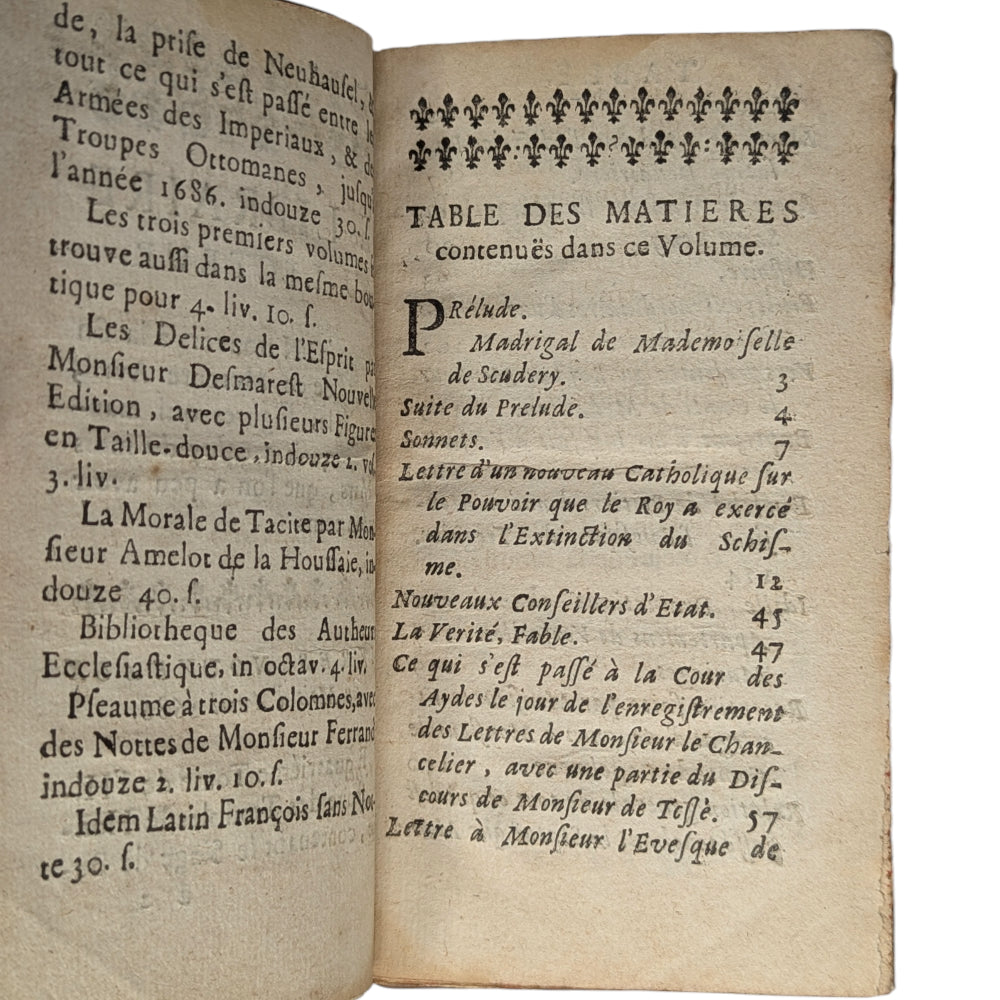 de, la priſe de Neuhauſel, &
tout ce qui s'eſt paſſé entre le
Armées des Imperiaux, & de
Troupes Ottomanes, juſqu
l'année 1686. indouze 30. ſ.
Les trois premiers volumes
trouve auſſi dans la meſme bou
tique pour 4. liv. 10. ſ.
Les Delices de l'Eſprit pa
Monſieur Deſmareſt Nouvell
Edition, avec pluſieurs Figure
en Taille-douce, indouze 2. vol
3. liv.
La Morale de Tacite par Mon
ſieur Amelot de la Houſſaie, in
douze 40. ſ.
Bibliotheque des Autheur
Eccleſiaſtique, in octav. 4. liv.
Pſeaume à trois Colomnes, avec
des Nottes de Monſieur Ferrand
indouze 2. liv. 10. ſ.
Idem Latin François ſans No
te 30. ſ.
TABLE DES MATIERES
contenuës dans ce Volume.
PRélude.
Madrigal de Mademoiſelle
de Scudery. 3
Suite du Prelude. 4
Sonnets. 7
Lettre d'un nouveau Catholique ſur
le Pouvoir que le Roy a exercé
dans l'Extinction du Schiſ-
me. 12
Nouveaux Conſeillers d'Etat. 45
La Verité, Fable. 47
Ce qui s'eſt paſſé à la Cour des
Aydes le jour de l'enregiſtrement
des Lettres de Monſieur le Chan-
celier, avec une partie du Diſ-
cours de Monſieur de Teſſè. 57
Lettre à Monſieur l'Eveſque de